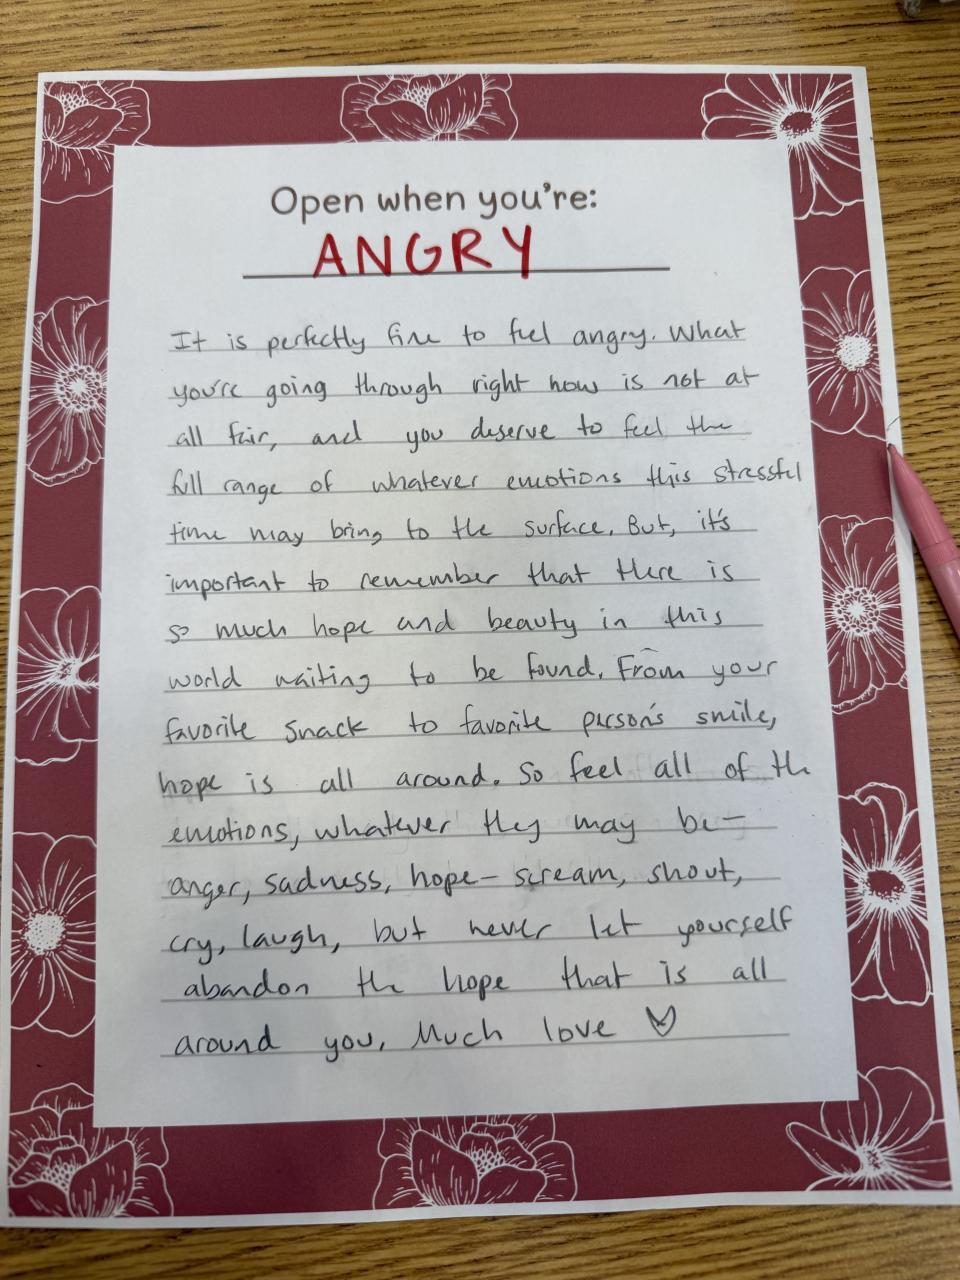 Open when you're:
ANGRY
It is perfectly fine to feel angry. What
you're going through right now is not at
all fair, and you deserve to feel the
full range of whatever emotions this stressful
time may bring to the surface. But, it's
important to remember that there is
so much hope and beauty in this
world waiting to be found. From your
favorite snack to favorite person's smile,
hope is all around. So feel all of the
emotions, whatever they may be-
anger, sadness, hope- scream, shout,
cry, laugh, but never let yourself
abandon the hope that is all
around you. Much love ♡